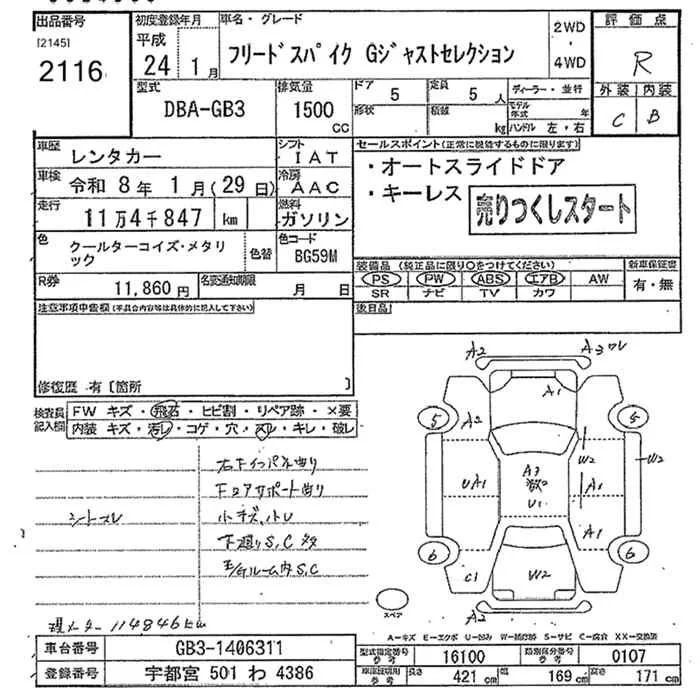 出品番号
[2145]
2116
初度登録年月
平成
24年 1月
車名・グレード
フリードスパイク Gジャストセレクション
2WD
・
4WD
評価点
R
外装 内装
C B
型式
DBA-GB3
排気量
1500
CC
ドア
5
定員
5人
形状
積載
kg
ディーラー・並行
モデル年式 年
ハンドル 左・右
車歴
レンタカー
シフト
IAT
車検
令和 8年 1月(29日)
冷房
AAC
走行
11万4千847 km
燃料
ガソリン
色
クールターコイズ・メタリック
色替
色コード
BG59M
R券
11,860円
名変通知期限
月 日
セールスポイント(正常に機能するものに限ります)
・オートスライドドア
・キーレス
売りつくしスタート
装備品 (純正品に限り○をつけてください)
PS PW ABS エアB AW
SR ナビ TV カワ
新車保証書
有・無
後日品
注意事項申告欄(不具合内容等は具体的に記入して下さい)
修復歴 有〔箇所 〕
検査員記入欄
FW キズ・飛石・ヒビ割・リペア跡・×要
内装 キズ・汚レ・コゲ・穴・スリ・キレ・破レ
右Fインパネ曲り
Fコアサポート曲り
シートスレ
小キズ、小U
下廻りS,C多
E/Gルーム内S,C
現メーター 114846km
A2
A3ワレ
A1
5
A2
5
W2
W2
UA1
A3
U1
A1
A1
6
C1
W2
6
A2
スペア
A-キズ E-エクボ U-凹み W-補修跡 S-サビ C-腐食 XX-交換済
車台番号
GB3-1406311
登録番号
宇都宮 501 わ 4386
型式指定番号
参考
16100
類別区分番号
参考
0107
参考
長さ
421 cm
幅
169 cm
高さ
171 cm